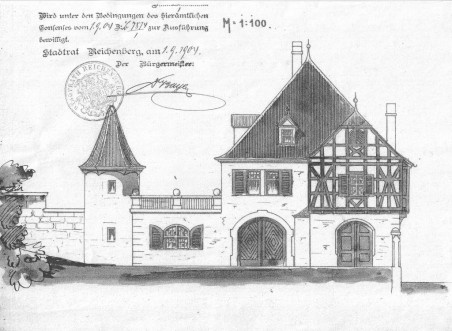 Wird unter den Bedingungen des hierämtlichen
Consenses vom 1.9.04 zur Ausführung
bewilligt.
Stadtrat Reichenberg, am 1.9.1904.
Der Bürgermeister:
M. 1:100.